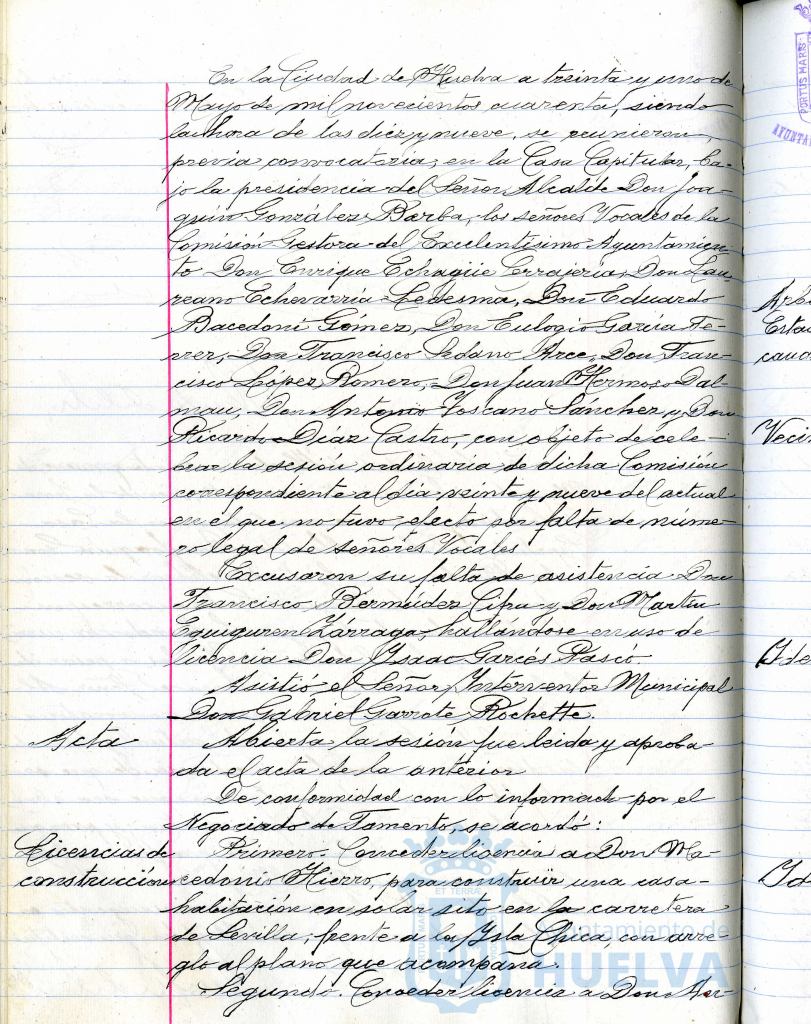 En la Ciudad de Huelva a treinta y uno de
Mayo de mil novecientos cuarenta, siendo
la hora de las diez y nueve, se reunieron,
previa convocatoria, en la Casa Capitular, ba-
jo la presidencia del Señor Alcalde Don Joa-
quín González Barba, los señores Vocales de la
Comisión Gestora del Excelentísimo Ayuntamien-
to Don Enrique Echagüe Errajería, Don Lau-
reano Echevarría Ledesma, Don Eduardo
Bacedoni Gómez, Don Eulogio García Fe-
rrer, Don Francisco Sedano Arce, Don Fran-
cisco López Romero, Don Juan Hermoso Dal-
mau, Don Antonio Toscano Sánchez y Don
Ricardo Díaz Castro, con objeto de cele-
brar la sesión ordinaria de dicha Comisión
correspondiente al día veinte y nueve del actual
en el que no tuvo efecto por falta de núme-
ro legal de señores Vocales
Excusaron su falta de asistencia Don
Francisco Bermúdez Cifru y Don Martín
Eguiguren Zárraga, hallándose en uso de
licencia Don Ysaac Garcés Pascó.
Asistió el Señor Interventor Municipal
Don Gabriel Garrote Rochette.
Acta
Abierta la sesión fue leida y aproba-
da el acta de la anterior
De conformidad con lo informado por el
Negociado de Fomento, se acordó:
Licencias de
construcción
Primero. Conceder licencia a Don Ma-
cedonio Hierro, para construir una casa-
habitación en solar sito en la carretera
de Sevilla, frente a la Ysla Chica, con arre-
glo al plano que acompaña.
Segundo. Conceder licencia a Don Mar-
Ayuntamiento de
HUELVA
PORTUS MARIS
AYUNTA
Esta
Veci
Ide
Id